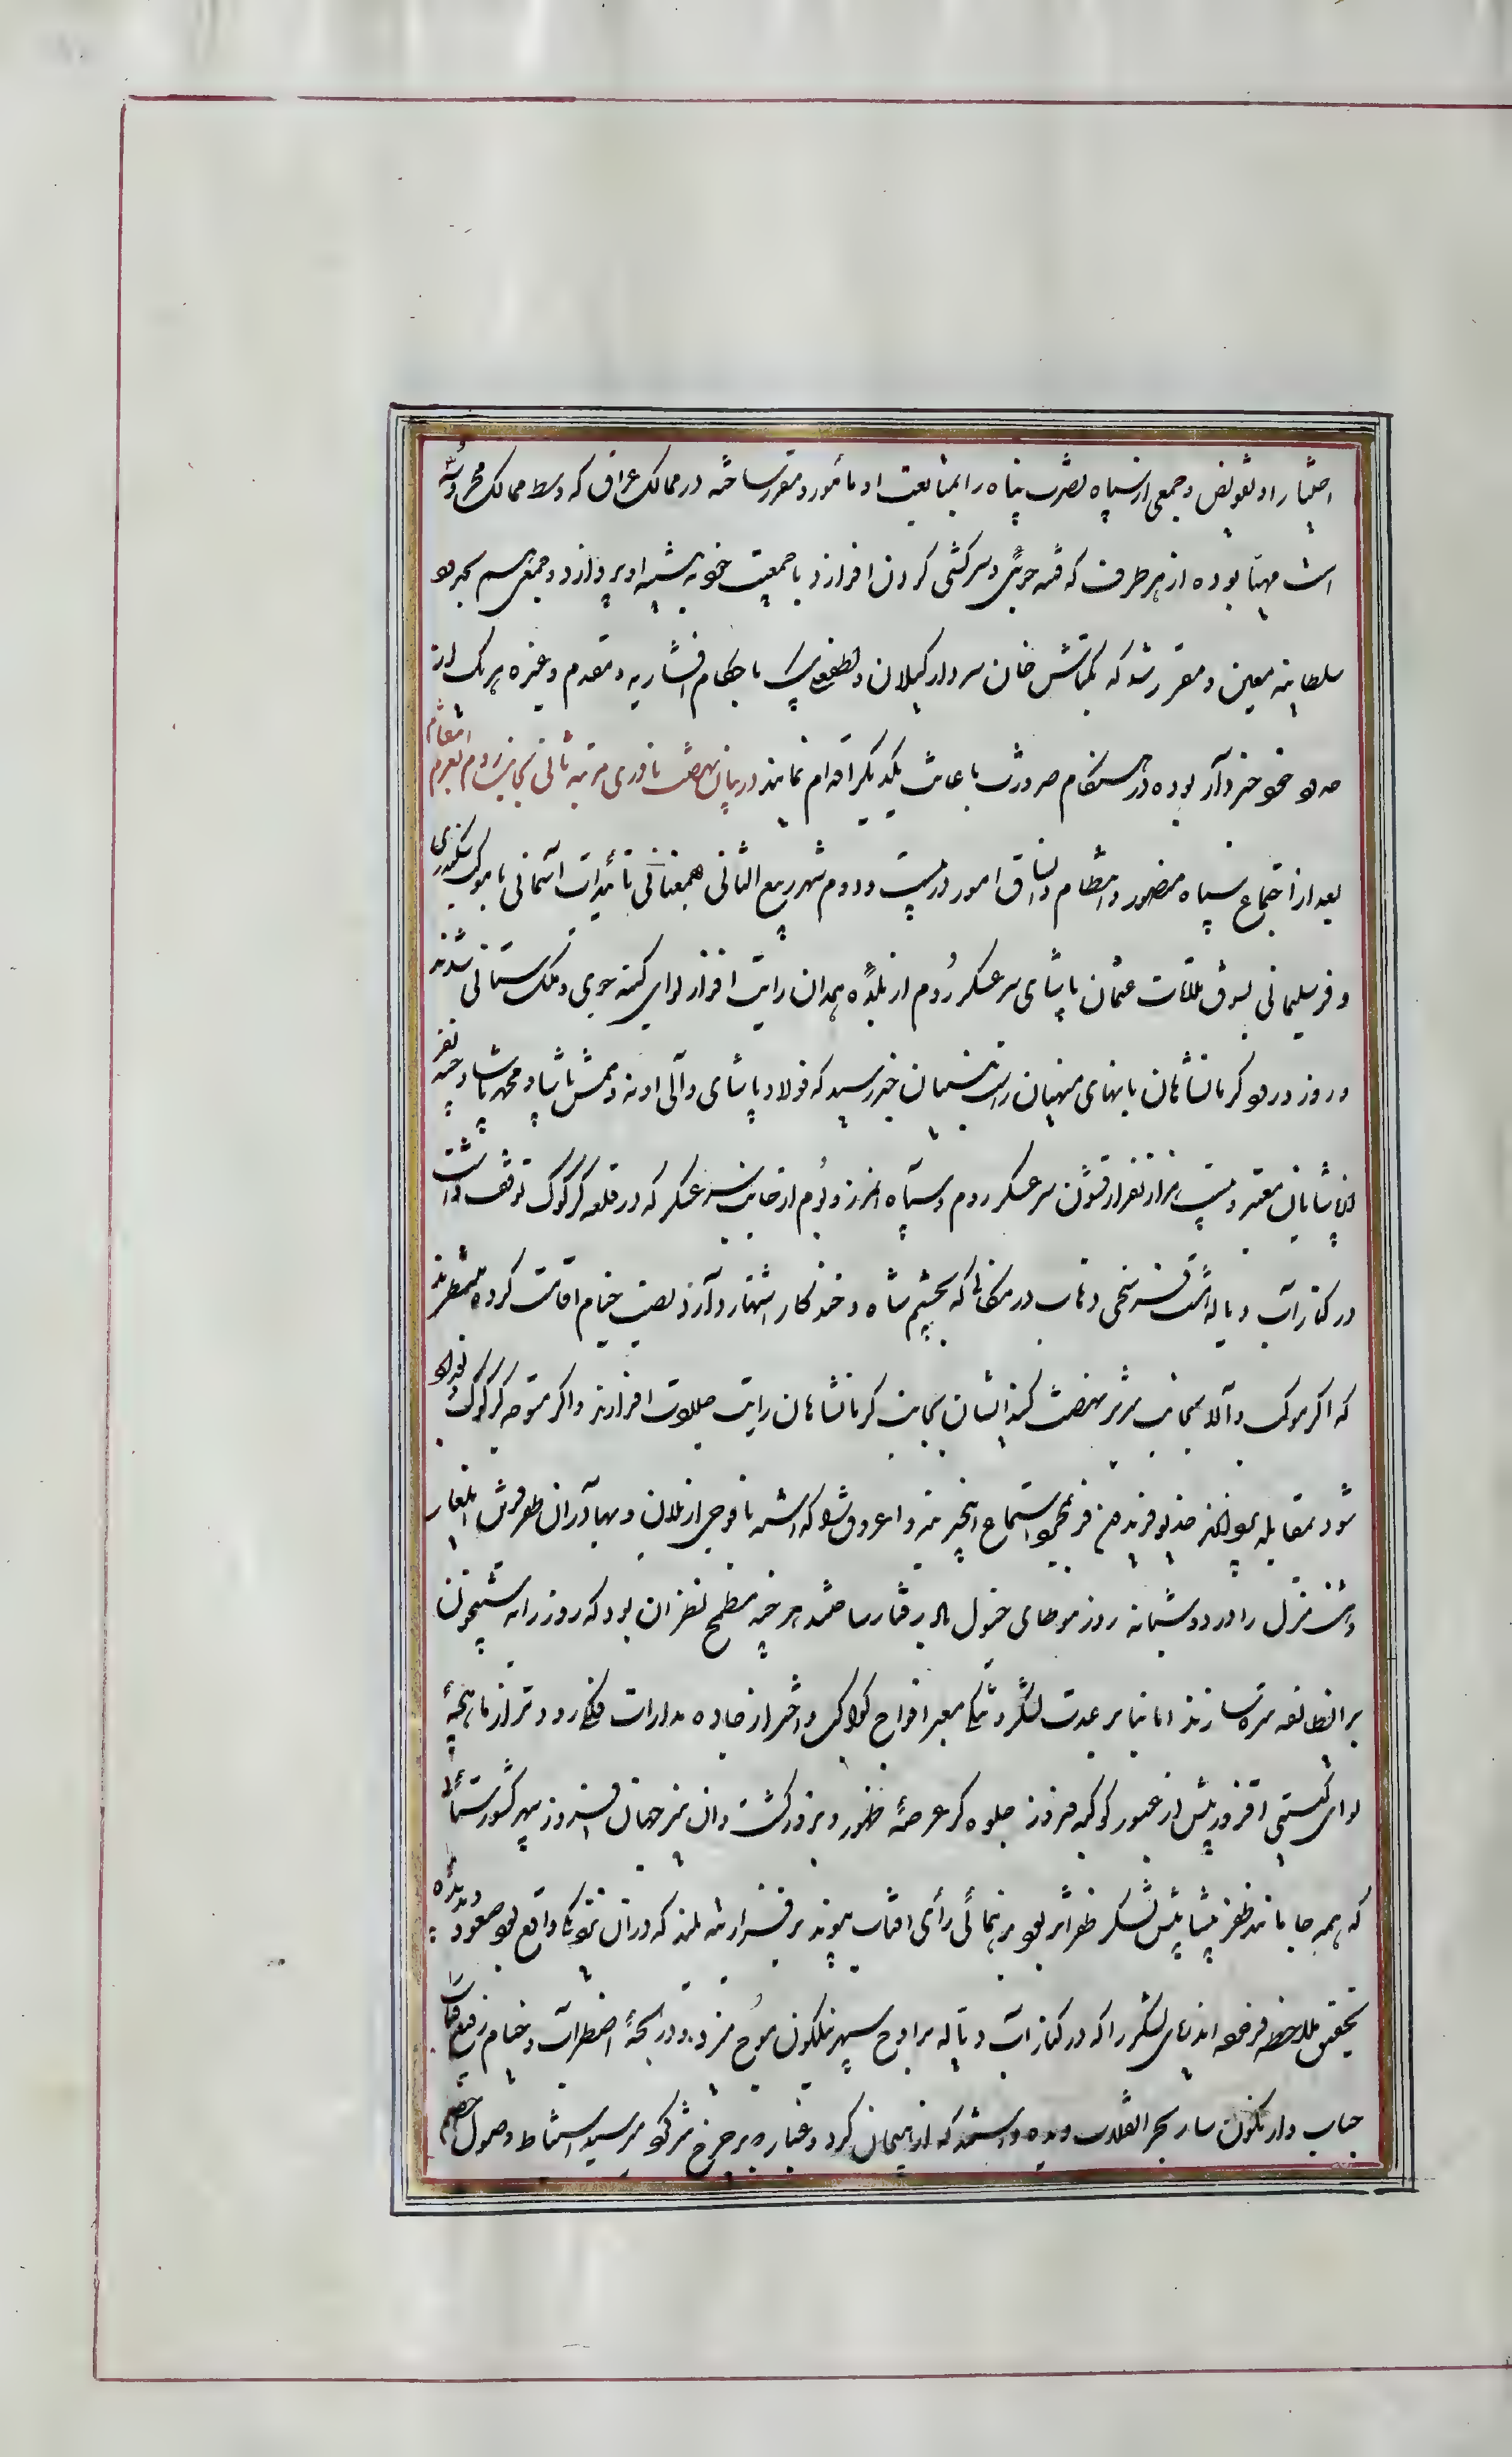 اختیار او تفویض و جمعی از سپاه نصرت پناه را بمتابعت او مأمور و مقرر ساخته در ممالک عراق که وسط ممالک محروسه
است مهیا بوده از هر طرف که فتنه جوئی و سرکشی گردن افرازد با جمعیت خود به تنبیه او پردازد و جمعی هم بحدود
سلطانیه معین و مقرر شد که بکتاش خان سردار گیلان و لطفعلی بیک با حکام افشاریه و مقدم و غیره هر یک از
حدود خود خبردار بوده در هنگام ضرورت باعانت یکدیگر اقدام نمایند در بیان نهضت نادری مرتبه ثانی بجانب روم بعزم انتقام
بعد از اجتماع سپاه منصور و انتظام و اتساق امور در بیست و دوم شهر ربیع الثانی همعنانی تأییدات آسمانی با موکب سکندری
و فر سلیمانی بشوق ملاقات عثمان پاشای سرعسکر روم از بلده همدان رایت افراز لوای کینه جوی و ملک ستانی شدند
و روز ورود کرمانشاهان بانهای منهیان راست بیان خبر رسید که فولاد پاشای والی ادنه و ممش پاشا و محمد پاشا و چند نفر
از پاشایان معتبر و بیست هزار نفر از قشون سرعسکر روم و سپاه آنمرز و بوم از جانب سرعسکر که در قلعه کرکوک توقف داشت
در کنار آب دیاله هشت فرسخی ذهاب در مکانی که بچشم شاه و خندکار اشتهار دارد نصب خیام اقامت کرده منتظرند
که اگر موکب والا بجانب تبریز نهضت کند ایشان بجانب کرمانشاهان رایت جلادت افرازند و اگر متوجه کرکوک و بغداد
شود بمقابله پردازند خدیو فریدون فر بمجرد استماع اینخبر بنه و اغروق گذاشته با فوجی از یلان و بهادران ظفر قرین ایلغار
و شش منزل را در دو شبانه روز موطای خیول باد رفتار ساختند هر چند مطمح نظر آن بود که روز را به شبیخون
بر آنطائفه تیره سازند اما بنا بر عدت لشکر و تنگی معبر افواج کواکب و اختر از جاده مدارات فلکی زودتر از ماهچهٔ
لوای گیتی افروز پیش از عبور کوکبه فیروز جلوه گر عرصهٔ ظهور و بروز گشت و آن نیر جهان افروز سپهر کشورستانی
که همه جا مانند ظفر پیشاپیش لشکر ظفر اثر بود برهنمائی رأی آفتاب پیوند بر فراز پشته بلند که در آن نزدیکی واقع بود صعود و بدیده
تحقیق ملاحظه فرموده اندریای لشکر را که در کنار آب دیاله بر اوج سپهر نیلگون موج میزد و در لجهٔ اضطراب و خیام رفیع قباب
حباب وار نگون سار بحر انقلاب دیده دانستند که از میان گرد و غبار که بر چرخ میرسید استنباط وصول خصم